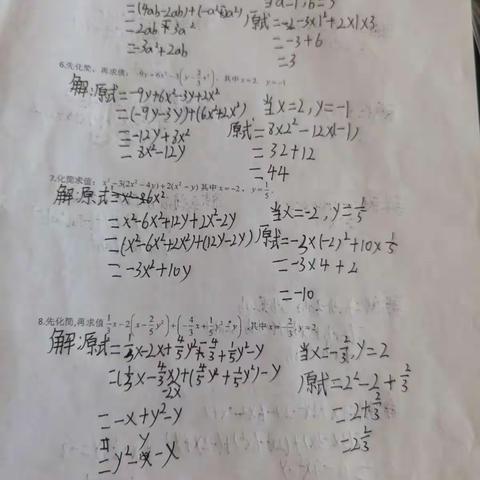 =(4ab-2ab)+(-a²-2a²)
=2ab-3a²
=-3a²+2ab
当a=1,b=3
原式=-3×1²+2×1×3
=-3+6
=3
6.先化简,再求值:-9y+6x²-3(y-2/3x²),其中x=2,y=-1
解:原式=-9y+6x²-3y+2x²
=(-9y-3y)+(6x²+2x²)
=-12y+8x²
=8x²-12y
当x=2,y=-1
原式=8×2²-12×(-1)
=32+12
=44
7.化简求值:x²-3(2x²-4y)+2(x²-y)其中x=-2,y=1/5
解:原式=x²-36x²
=x²-6x²+12y+2x²-2y
=(x²-6x²+2x²)+(12y-2y)
=-3x²+10y
当x=-2,y=1/5
原式=-3×(-2)²+10×1/5
=-3×4+2
=-10
8.先化简,再求值1/3x-2(x-2/5y²)+(-4/3x+1/5y²-y),其中x=-2/3,y=2
解:原式=1/3x-2x+4/5y²-4/3+1/5y²-y
=(1/3x-4/3x)+(4/5y²+1/5y²)-y
-2x
=-x+y²-y
=y²-y-x
当x=-2/3,y=2
原式=2²-2+2/3
=2+2/3
=2 2/3